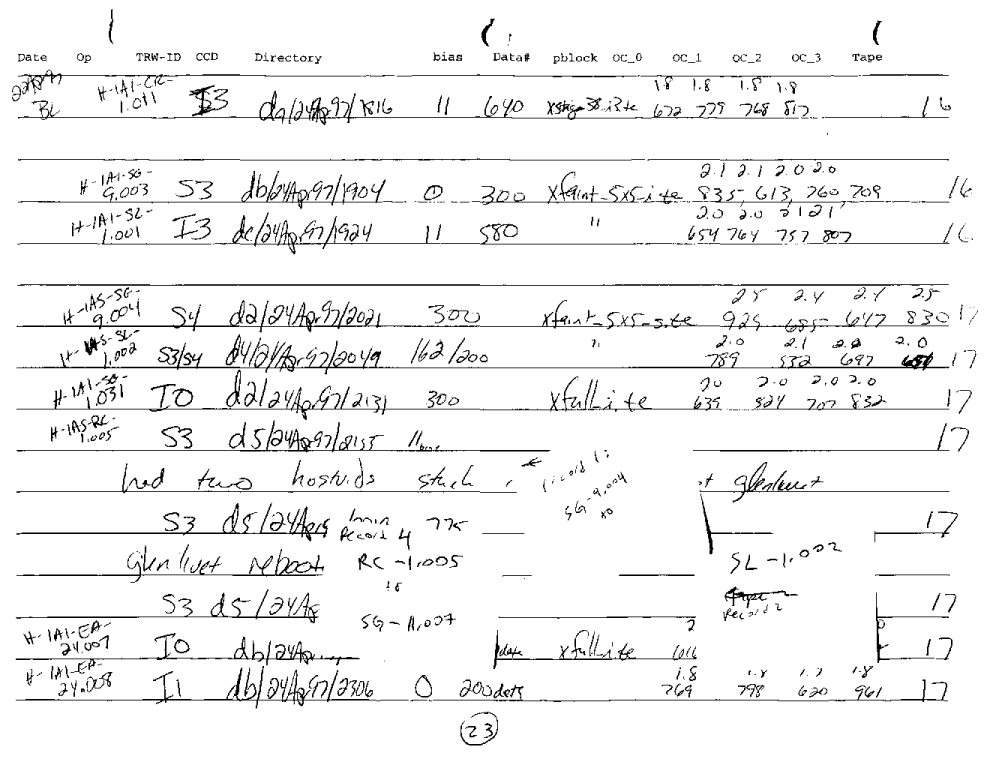 Date Op TRW-ID CCD Directory bias Data# pblock OC_0 OC_1 OC_2 OC_3 Tape
BL H-1A1-CR-1.011 I3 da/24Apr97/1816 11 640 1.8 1.8 1.8 1.8
672 779 768 817 16
H-1A1-SG-9.003 S3 db/24Apr97/1904 0 300 xfaint_5x5_ite 2.1 2.1 2.0 2.0
835, 613, 760 709 16
H-1A1-SL-1.001 I3 dc/24Apr97/1924 11 580 " 2.0 2.0 2.1 2.1
654 764 757 807 16
H-1AS-SG-9.004 S4 d2/24Apr97/2021 300 xfaint_5x5_site 2.5 2.4 2.4 2.5
925 685 647 830 17
H-1AS-SL-1.002 S3/S4 d4/24Apr97/2049 162/200 " 2.0 2.1 2.2 2.0
789 532 697 17
H-1A1-SG-1.031 I0 d2/24Apr97/2131 300 xfullite 2.0 2.0 2.0 2.0
639 824 707 832 17
H-1AS-RC-1.005 S3 d5/24Apr97/2155 17
had two hostids record 1:
SG-9.004
S3 d5/24Apr 775 17
record 4
glenlivet reboot RC-1.005 SL-1.002
S3 d5/24Ap record 2 17
SG-11.007
H-1A1-EA-24.007 I0 db/24Apr data xfullite 616 17
H-1A1-EA-24.008 I1 db/24Apr97/2306 0 200 dets 1.8 1.8 1.7 1.8
769 798 620 961 17
23